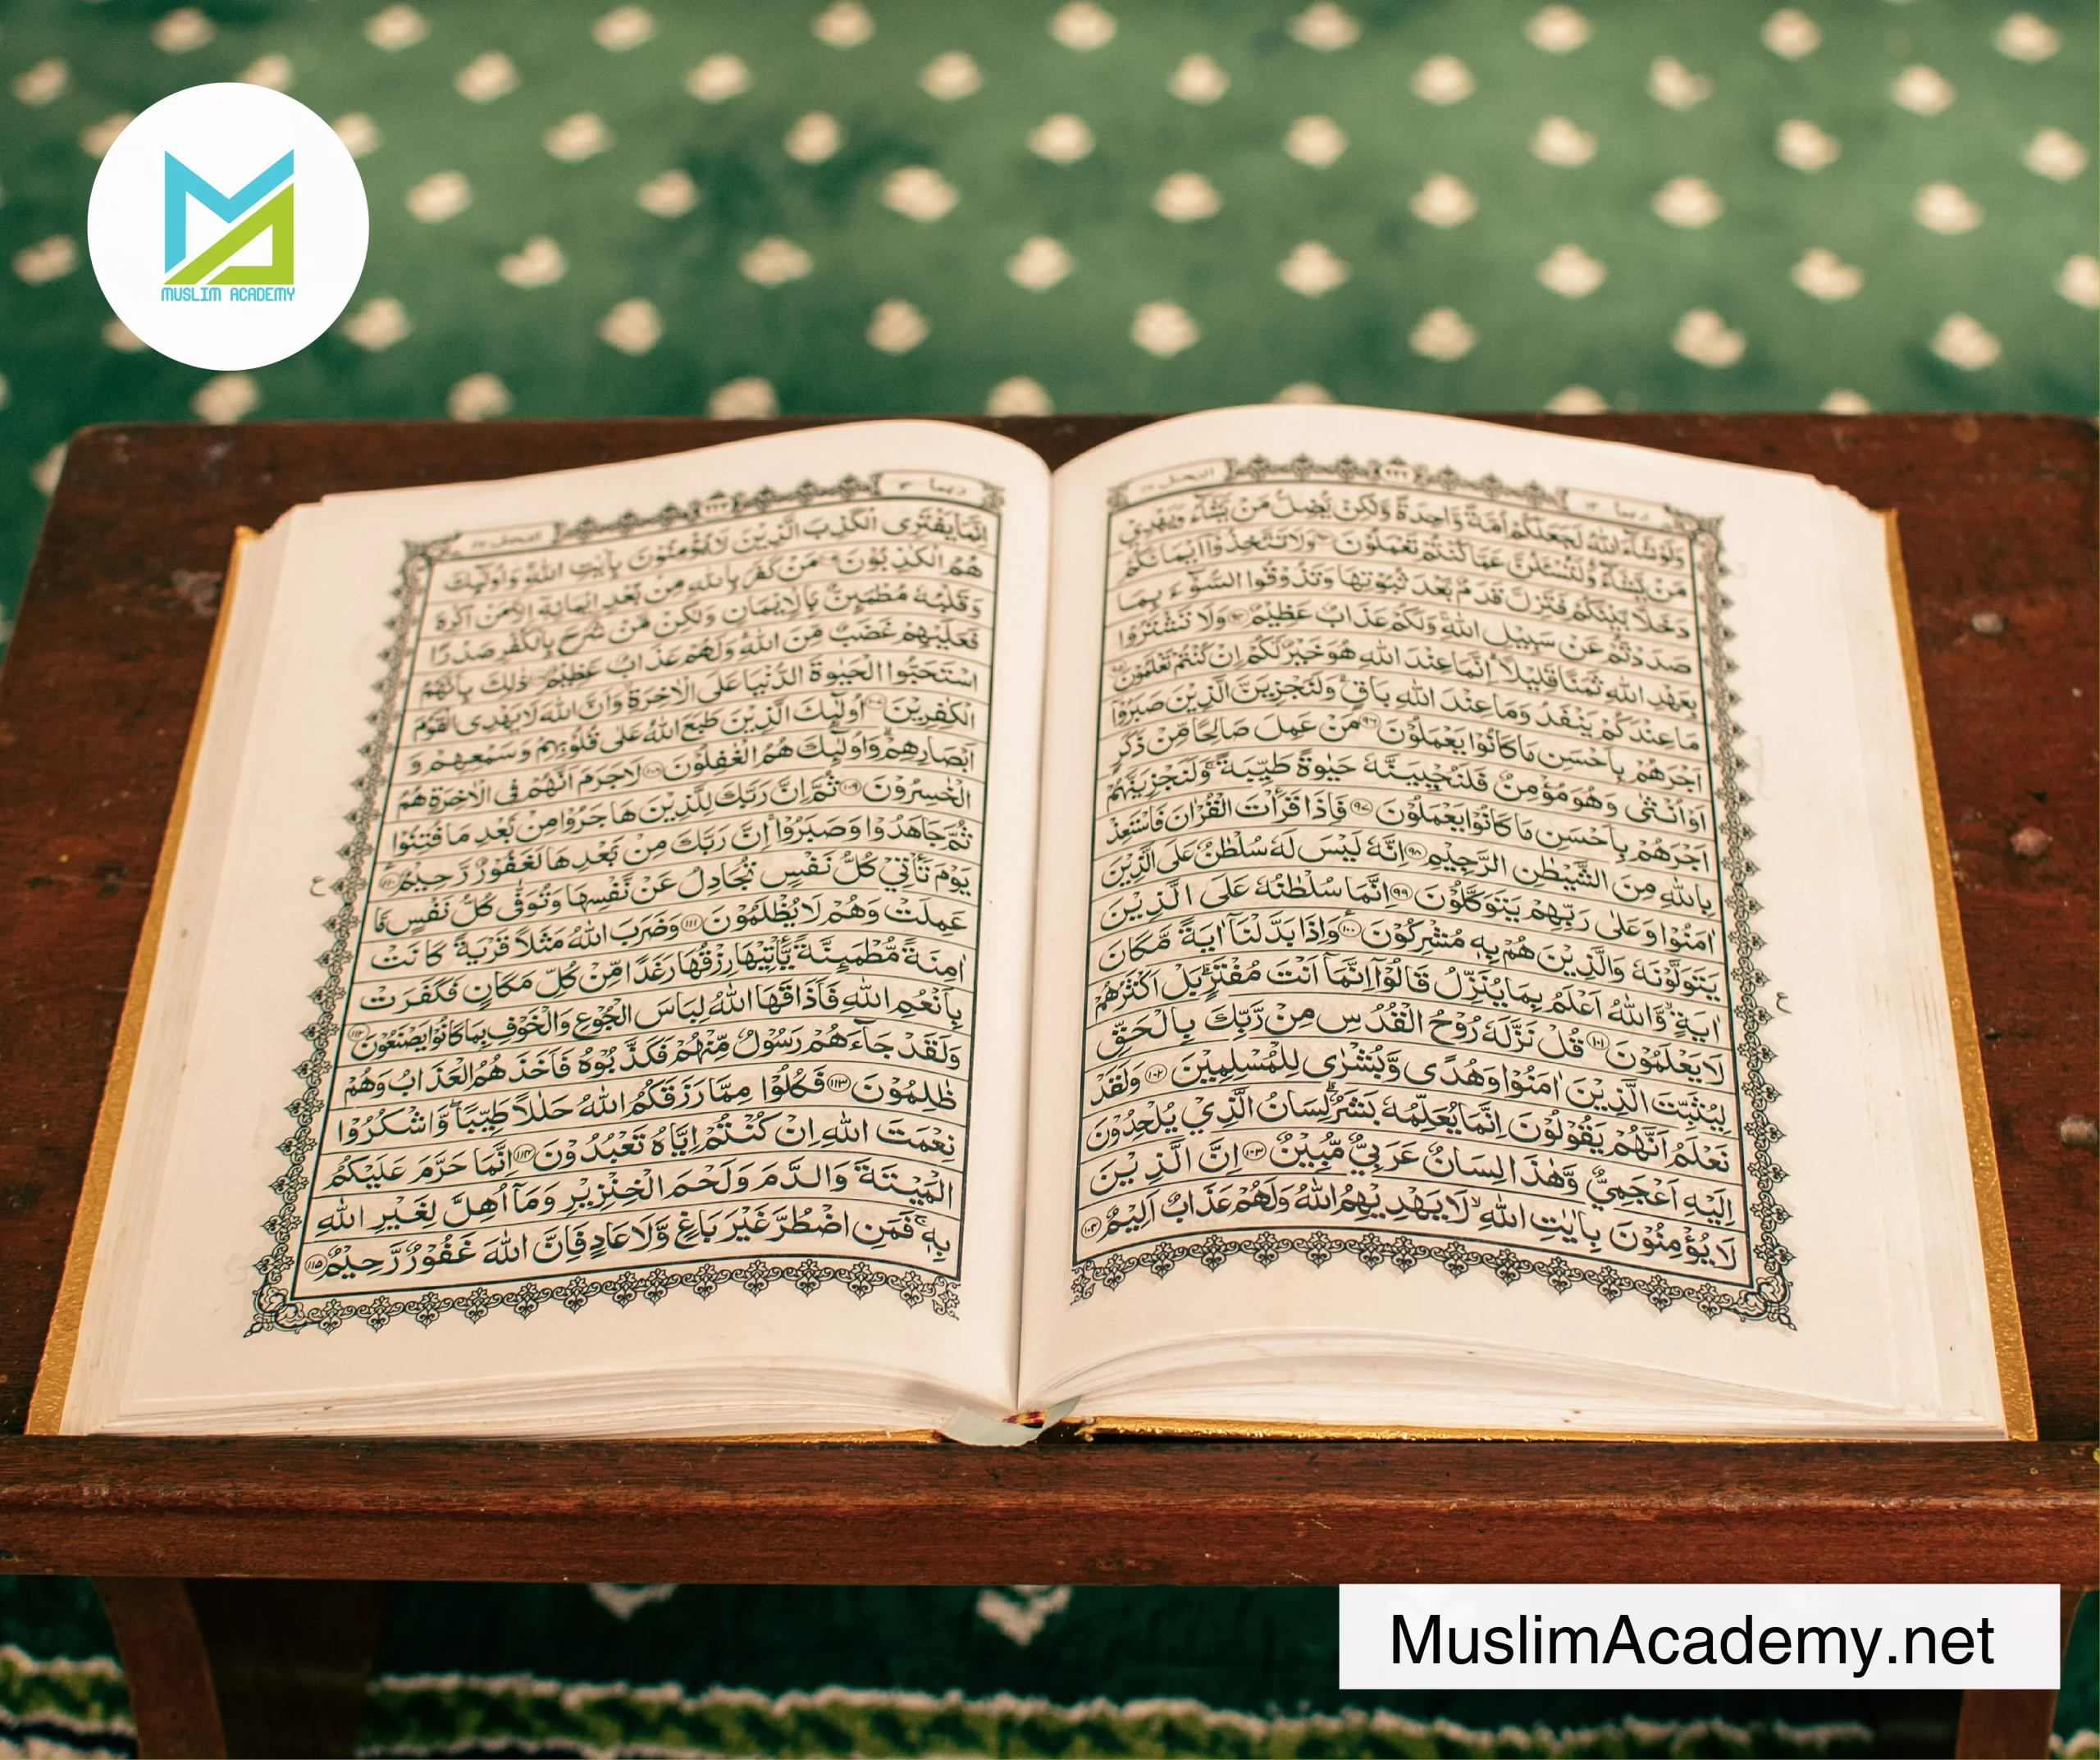 MUSLIM ACADEMY
ربما ١٤ النحل ١٦
وَلَوْ شَآءَ اللّٰهُ لَجَعَلَكُمْ اُمَّةً وَّاحِدَةً وَّلٰكِنْ يُّضِلُّ مَنْ يَّشَآءُ وَيَهْدِيْ
مَنْ يَّشَآءُ ؕ وَلَتُسْئَلُنَّ عَمَّا كُنْتُمْ تَعْمَلُوْنَ ٩٣ وَلَا تَتَّخِذُوْٓا اَيْمَانَكُمْ
دَخَلًاۢ بَيْنَكُمْ فَتَزِلَّ قَدَمٌۢ بَعْدَ ثُبُوْتِهَا وَتَذُوْقُوا السُّوْٓءَ بِمَا
صَدَدْتُّمْ عَنْ سَبِيْلِ اللّٰهِ ۚ وَلَكُمْ عَذَابٌ عَظِيْمٌ ٩٤ وَلَا تَشْتَرُوْا
بِعَهْدِ اللّٰهِ ثَمَنًا قَلِيْلًا ؕ اِنَّمَا عِنْدَ اللّٰهِ هُوَ خَيْرٌ لَّكُمْ اِنْ كُنْتُمْ تَعْلَمُوْنَ ٩٥
مَا عِنْدَكُمْ يَنْفَدُ وَمَا عِنْدَ اللّٰهِ بَاقٍ ؕ وَلَنَجْزِيَنَّ الَّذِيْنَ صَبَرُوْٓا
اَجْرَهُمْ بِاَحْسَنِ مَا كَانُوْا يَعْمَلُوْنَ ٩٦ مَنْ عَمِلَ صَالِحًا مِّنْ ذَكَرٍ
اَوْ اُنْثٰى وَهُوَ مُؤْمِنٌ فَلَنُحْيِيَنَّهٗ حَيٰوةً طَيِّبَةً ۚ وَلَنَجْزِيَنَّهُمْ
اَجْرَهُمْ بِاَحْسَنِ مَا كَانُوْا يَعْمَلُوْنَ ٩٧ فَاِذَا قَرَأْتَ الْقُرْاٰنَ فَاسْتَعِذْ
بِاللّٰهِ مِنَ الشَّيْطٰنِ الرَّجِيْمِ ٩٨ اِنَّهٗ لَيْسَ لَهٗ سُلْطٰنٌ عَلَى الَّذِيْنَ
اٰمَنُوْا وَعَلٰى رَبِّهِمْ يَتَوَكَّلُوْنَ ٩٩ اِنَّمَا سُلْطٰنُهٗ عَلَى الَّذِيْنَ
يَتَوَلَّوْنَهٗ وَالَّذِيْنَ هُمْ بِهٖ مُشْرِكُوْنَ ١٠٠ وَاِذَا بَدَّلْنَآ اٰيَةً مَّكَانَ
اٰيَةٍ ۙ وَّاللّٰهُ اَعْلَمُ بِمَا يُنَزِّلُ قَالُوْٓا اِنَّمَآ اَنْتَ مُفْتَرٍ ؕ بَلْ اَكْثَرُهُمْ
لَا يَعْلَمُوْنَ ١٠١ قُلْ نَزَّلَهٗ رُوْحُ الْقُدُسِ مِنْ رَّبِّكَ بِالْحَقِّ
لِيُثَبِّتَ الَّذِيْنَ اٰمَنُوْا وَهُدًى وَّبُشْرٰى لِلْمُسْلِمِيْنَ ١٠٢ وَلَقَدْ
نَعْلَمُ اَنَّهُمْ يَقُوْلُوْنَ اِنَّمَا يُعَلِّمُهٗ بَشَرٌ ؕ لِسَانُ الَّذِيْ يُلْحِدُوْنَ
اِلَيْهِ اَعْجَمِيٌّ وَّهٰذَا لِسَانٌ عَرَبِيٌّ مُّبِيْنٌ ١٠٣ اِنَّ الَّذِيْنَ
لَا يُؤْمِنُوْنَ بِاٰيٰتِ اللّٰهِ ۙ لَا يَهْدِيْهِمُ اللّٰهُ وَلَهُمْ عَذَابٌ اَلِيْمٌ ١٠٤
ع
ربما ١٤ النحل ١٦
اِنَّمَا يَفْتَرِى الْكَذِبَ الَّذِيْنَ لَا يُؤْمِنُوْنَ بِاٰيٰتِ اللّٰهِ ۚ وَاُولٰٓئِكَ
هُمُ الْكٰذِبُوْنَ ١٠٥ مَنْ كَفَرَ بِاللّٰهِ مِنْۢ بَعْدِ اِيْمَانِهٖٓ اِلَّا مَنْ اُكْرِهَ
وَقَلْبُهٗ مُطْمَئِنٌّۢ بِالْاِيْمَانِ وَلٰكِنْ مَّنْ شَرَحَ بِالْكُفْرِ صَدْرًا
فَعَلَيْهِمْ غَضَبٌ مِّنَ اللّٰهِ ۚ وَلَهُمْ عَذَابٌ عَظِيْمٌ ١٠٦ ذٰلِكَ بِاَنَّهُمُ
اسْتَحَبُّوا الْحَيٰوةَ الدُّنْيَا عَلَى الْاٰخِرَةِ ۙ وَاَنَّ اللّٰهَ لَا يَهْدِى الْقَوْمَ
الْكٰفِرِيْنَ ١٠٧ اُولٰٓئِكَ الَّذِيْنَ طَبَعَ اللّٰهُ عَلٰى قُلُوْبِهِمْ وَسَمْعِهِمْ وَ
اَبْصَارِهِمْ ۚ وَاُولٰٓئِكَ هُمُ الْغٰفِلُوْنَ ١٠٨ لَا جَرَمَ اَنَّهُمْ فِى الْاٰخِرَةِ هُمُ
الْخٰسِرُوْنَ ١٠٩ ثُمَّ اِنَّ رَبَّكَ لِلَّذِيْنَ هَاجَرُوْا مِنْۢ بَعْدِ مَا فُتِنُوْا
ثُمَّ جَاهَدُوْا وَصَبَرُوْٓا ۙ اِنَّ رَبَّكَ مِنْۢ بَعْدِهَا لَغَفُوْرٌ رَّحِيْمٌ ١١٠
ع
يَوْمَ تَاْتِيْ كُلُّ نَفْسٍ تُجَادِلُ عَنْ نَّفْسِهَا وَتُوَفّٰى كُلُّ نَفْسٍ مَّا
عَمِلَتْ وَهُمْ لَا يُظْلَمُوْنَ ١١١ وَضَرَبَ اللّٰهُ مَثَلًا قَرْيَةً كَانَتْ
اٰمِنَةً مُّطْمَئِنَّةً يَّاْتِيْهَا رِزْقُهَا رَغَدًا مِّنْ كُلِّ مَكَانٍ فَكَفَرَتْ
بِاَنْعُمِ اللّٰهِ فَاَذَاقَهَا اللّٰهُ لِبَاسَ الْجُوْعِ وَالْخَوْفِ بِمَا كَانُوْا يَصْنَعُوْنَ ١١٢
وَلَقَدْ جَآءَهُمْ رَسُوْلٌ مِّنْهُمْ فَكَذَّبُوْهُ فَاَخَذَهُمُ الْعَذَابُ وَهُمْ
ظٰلِمُوْنَ ١١٣ فَكُلُوْا مِمَّا رَزَقَكُمُ اللّٰهُ حَلٰلًا طَيِّبًا ۪ وَّاشْكُرُوْا
نِعْمَتَ اللّٰهِ اِنْ كُنْتُمْ اِيَّاهُ تَعْبُدُوْنَ ١١٤ اِنَّمَا حَرَّمَ عَلَيْكُمُ
الْمَيْتَةَ وَالدَّمَ وَلَحْمَ الْخِنْزِيْرِ وَمَآ اُهِلَّ لِغَيْرِ اللّٰهِ
بِهٖ ۚ فَمَنِ اضْطُرَّ غَيْرَ بَاغٍ وَّلَا عَادٍ فَاِنَّ اللّٰهَ غَفُوْرٌ رَّحِيْمٌ ١١٥
MuslimAcademy.net